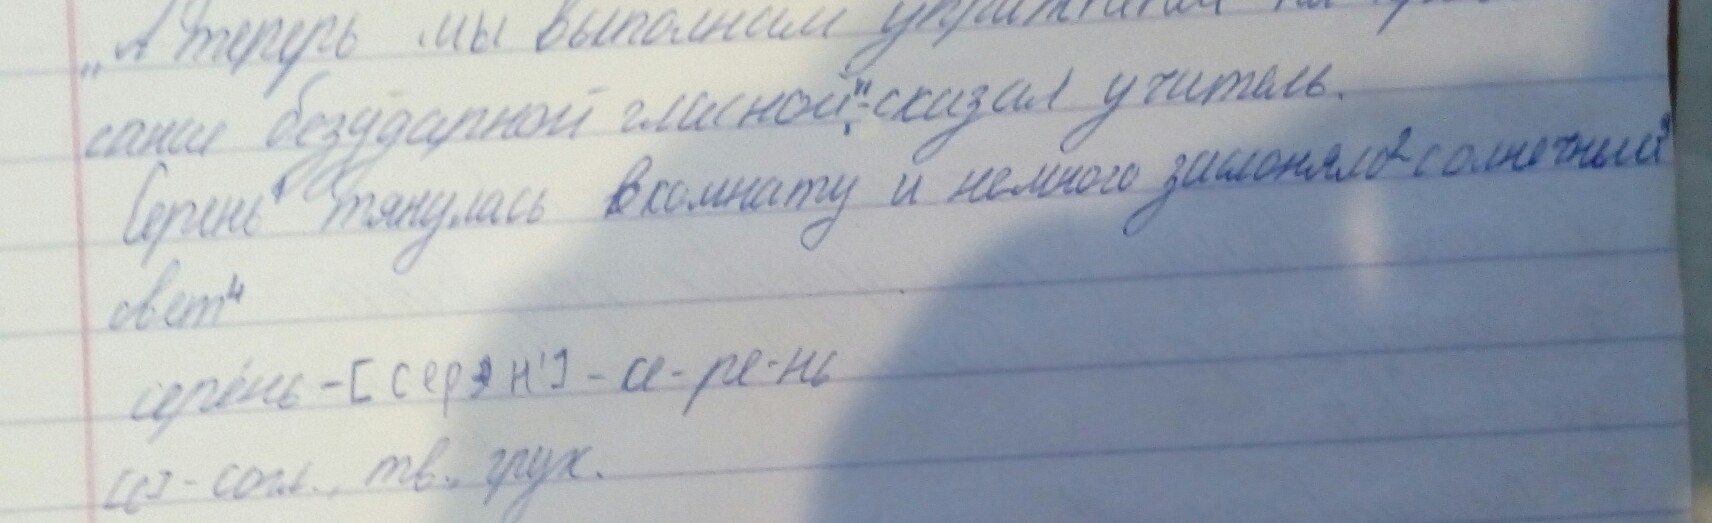 „А теперь мы выполним упражнения на
сании безударной гласной",-сказал учитель.
Серень¹ тянулась в комнату и немного заслоняло² солнечный³
свет⁴
сере́нь-[серэн']-се-ре-нь
[с]-согл., тв., глух.